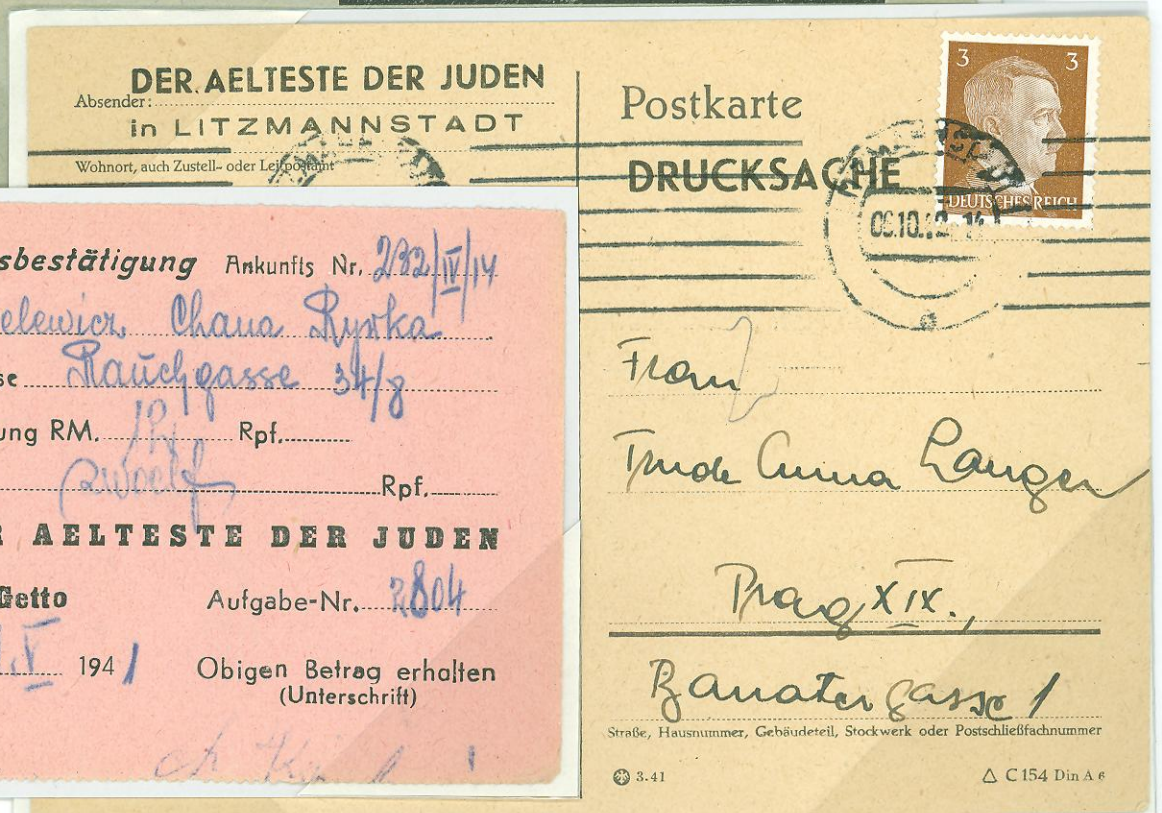 DER AELTESTE DER JUDEN
Absender:
in LITZMANNSTADT
Wohnort, auch Zustell- oder Leitpostamt
Postkarte
DRUCKSACHE
3 3
DEUTSCHES REICH
Frau
Trude Anna Langer
Prag XIX.,
Banatergasse 1
Straße, Hausnummer, Gebäudeteil, Stockwerk oder Postschließfachnummer
3.41
C 154 Din A 6
sbestätigung Ankunfts Nr. 232/IV/14
elewicz Chana Ryvka
se Rauchgasse 34/8
ung RM. Rpf.
zwoelf Rpf.
R AELTESTE DER JUDEN
Getto Aufgabe-Nr. 2804
V 1941 Obigen Betrag erhalten
(Unterschrift)